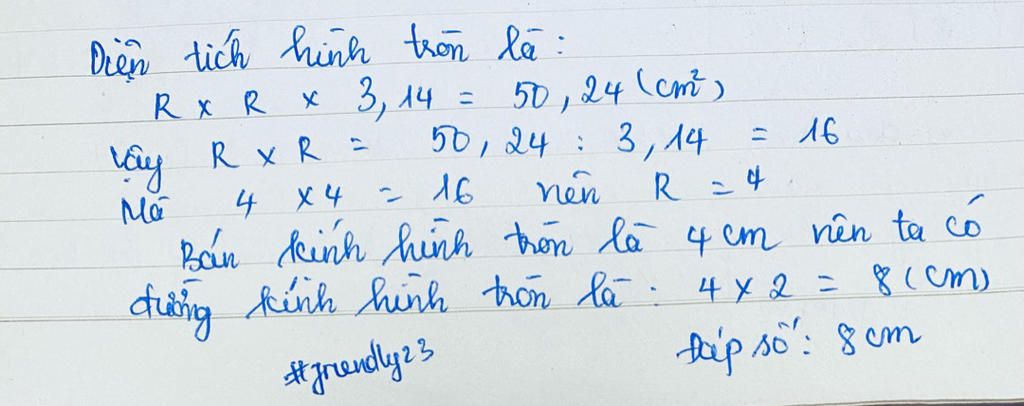 Diện tích hình tròn là:
R x R x 3,14 = 50,24 (cm²)
Vậy R x R = 50,24 : 3,14 = 16
Mà 4 x 4 = 16 nên R = 4
Bán kính hình tròn là 4 cm nên ta có
đường kính hình tròn là: 4 x 2 = 8 (cm)
Đáp số: 8 cm
#friendly23